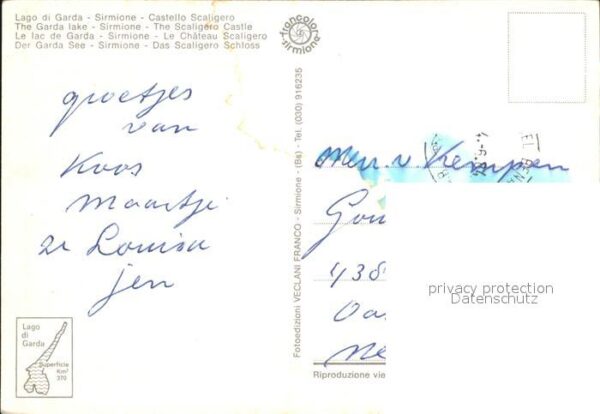 Lago di Garda - Sirmione - Castello Scaligero
The Garda lake - Sirmione - The Scaligero Castle
Le lac de Garda - Sirmione - Le Château Scaligero
Der Garda See - Sirmione - Das Scaligero Schloss
francolor
sirmione
groetjes
van
Koos
Maartje
Louisa
jen
Fotoedizioni VECLANI FRANCO - Sirmione - (Bs) - Tel. (030) 916235
v Kempen
Gou
438
Oa
Ne
privacy protection
Datenschutz
Riproduzione vie
Lago
di
Garda
Superficie
Km²
370